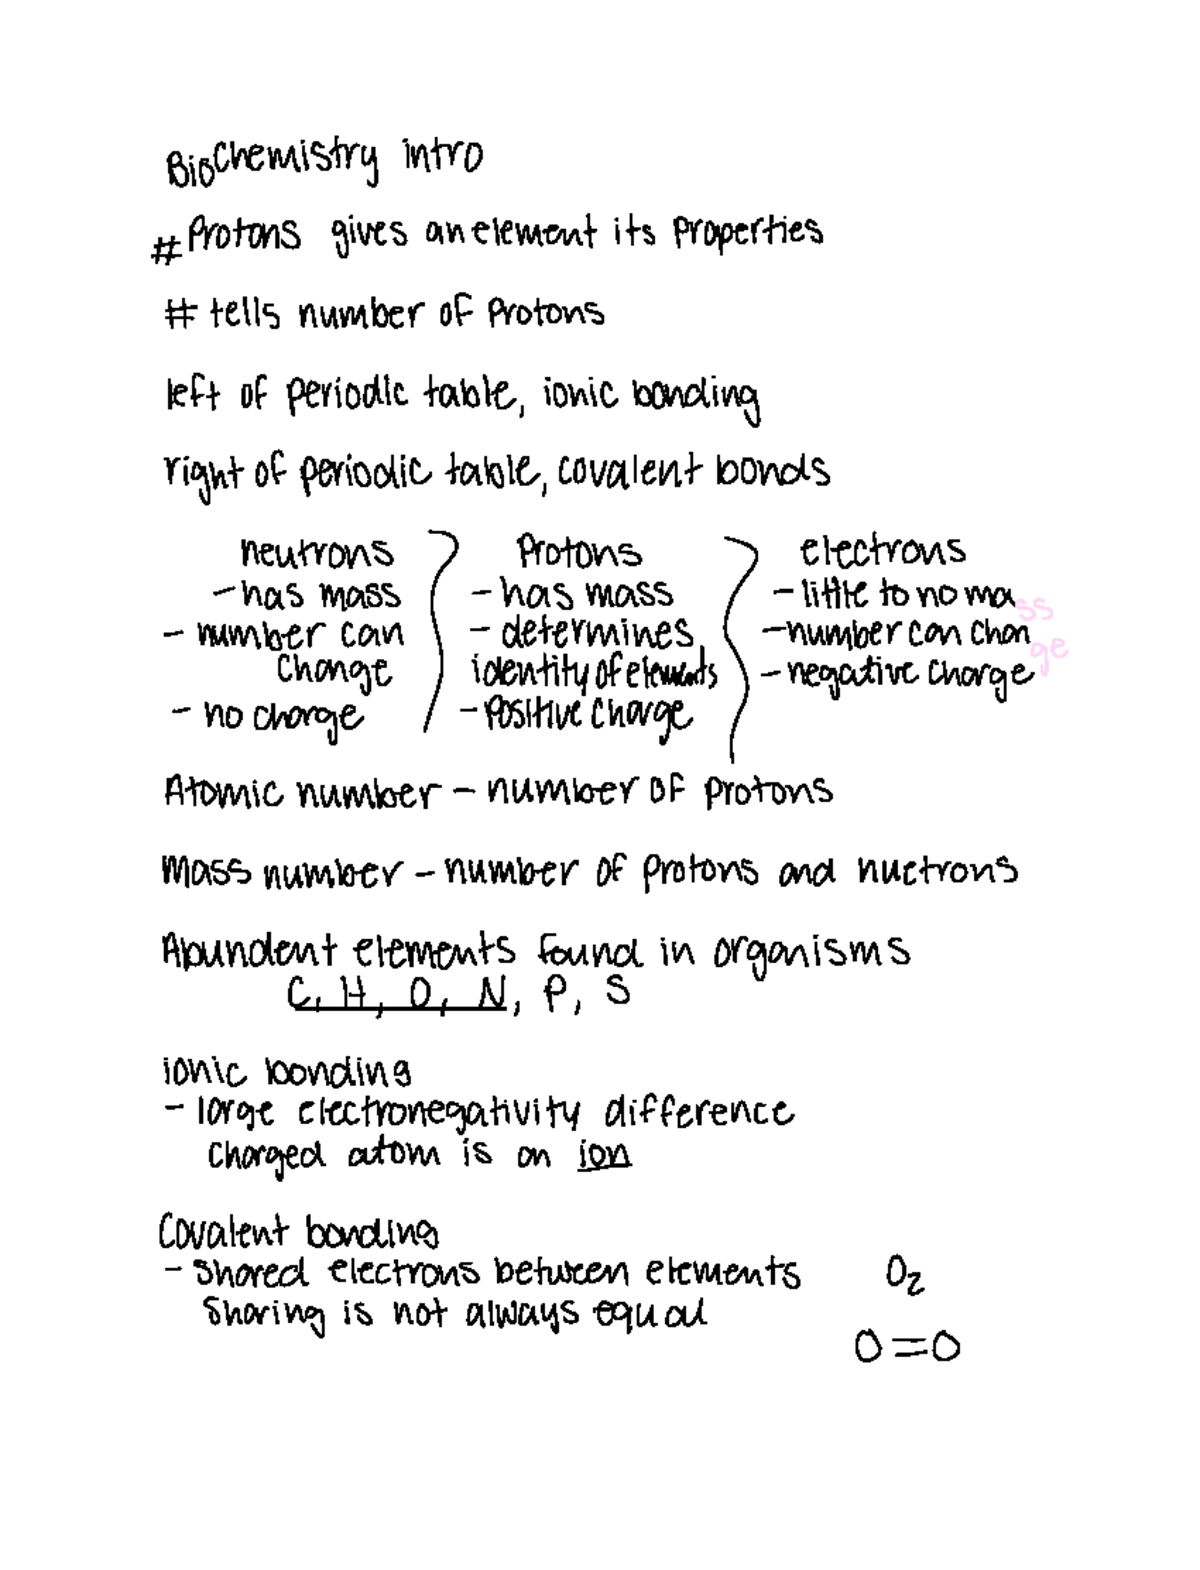 BioChemistry intro
# Protons gives an element its properties
# tells number of Protons
left of periodic table, ionic bonding
right of periodic table, covalent bonds
neutrons
- has mass
- number can
change
- no charge
Protons
- has mass
- determines
identity of elements
- Positive charge
electrons
- little to no mass
- number can change
- negative charge
Atomic number - number of protons
Mass number - number of protons and nuetrons
Abundent elements found in organisms
C, H, O, N, P, S
ionic bonding
- large electronegativity difference
Charged atom is an ion
Covalent bonding
- Shared electrons between elements
Sharing is not always equal
O2
O=O